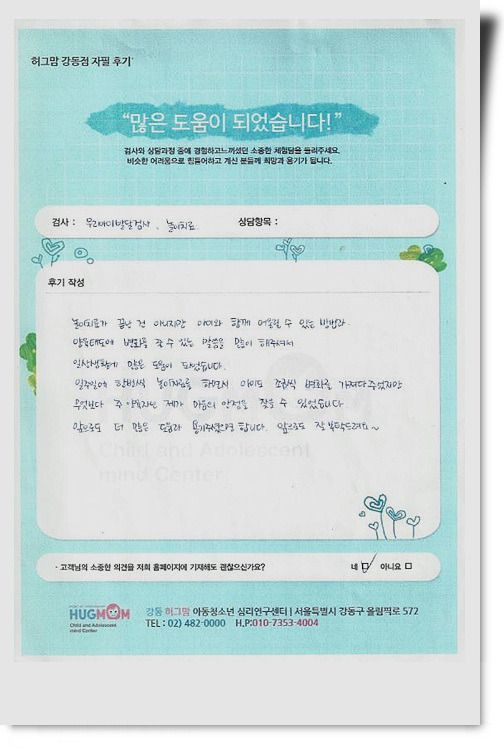 허그맘 강동점 자필 후기
"많은 도움이 되었습니다!"
검사와 상담과정 중에 경험하고느끼셨던 소중한 체험담을 들려주세요.
비슷한 어려움으로 힘들어하고 계신 분들께 희망과 용기가 됩니다.
검사 : 우리아이발달검사, 놀이치료 상담항목 :
후기 작성
놀이치료가 끝난 건 아니지만 아이와 함께 어울릴 수 있는 방법과
양육태도에 변화를 줄 수 있는 말씀을 많이 해주셔서
일상생활에 많은 도움이 되었습니다.
일주일에 한번씩 놀이치료를 하면서 아이도 조금씩 변화를 가져다주었지만
무엇보다 주 양육자인 제가 마음의 안정을 찾을 수 있었습니다
앞으로도 더 많은 도움과 용기주셨으면 합니다. 앞으로도 잘 부탁드려요~
Child and Adolescent
mind Center
· 고객님의 소중한 의견을 저희 홈페이지에 기재해도 괜찮으신가요? 네 아니요
HUGMOM
Child and Adolescent
mind Center
강동 허그맘 아동청소년 심리연구센터 | 서울특별시 강동구 올림픽로 572
TEL : 02) 482-0000 H.P:010-7353-4004